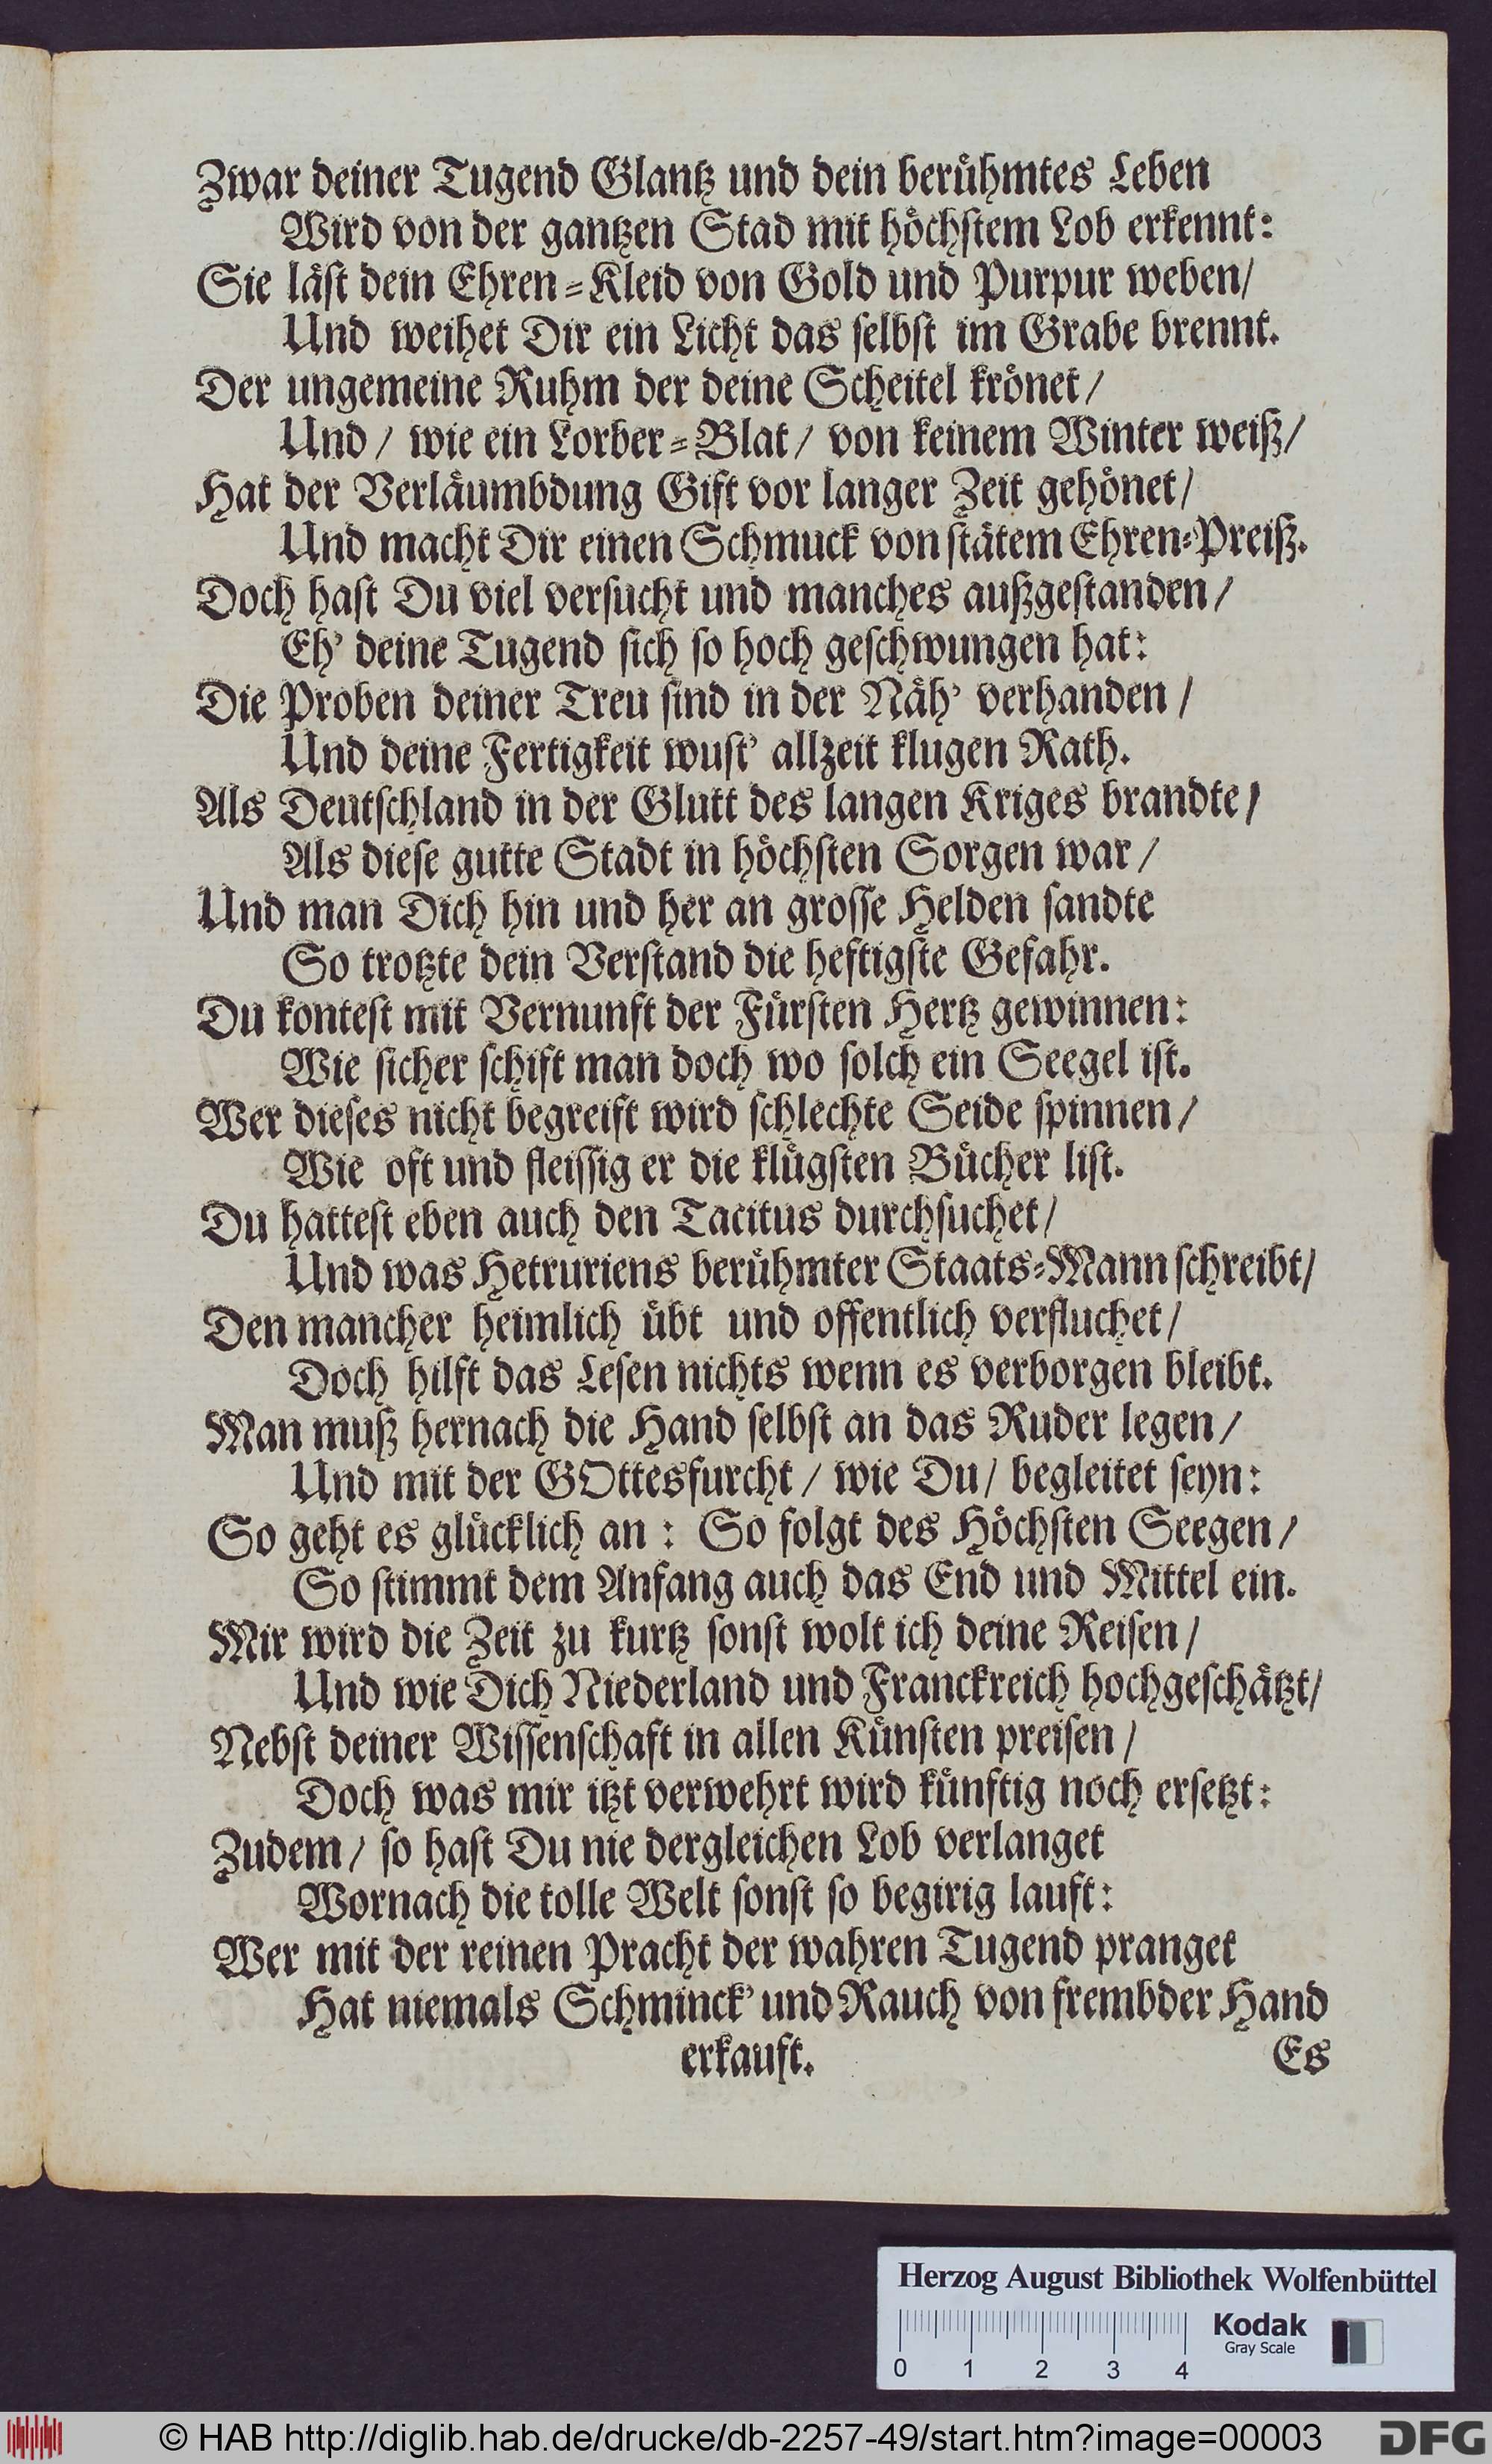 Zwar deiner Tugend Glantz und dein beruͤhmtes Leben
Wird von der gantzen Stad mit hoͤchſtem Lob erkennt:
Sie laͤſt dein Ehren⸗Kleid von Gold und Purpur weben/
Und weihet Dir ein Licht das ſelbſt im Grabe brennt.
Der ungemeine Ruhm der deine Scheitel kroͤnet/
Und/ wie ein Lorber⸗Blat/ von keinem Winter weiß/
Hat der Verlaͤumbdung Gift vor langer Zeit gehoͤnet/
Und macht Dir einen Schmuck von ſtaͤtem Ehren⸗Preiß.
Doch haſt Du viel verſucht und manches außgeſtanden/
Eh' deine Tugend ſich ſo hoch geſchwungen hat:
Die Proben deiner Treu ſind in der Naͤh' verhanden/
Und deine Fertigkeit wuſt' allzeit klugen Rath.
Als Deutſchland in der Glutt des langen Kriges brandte/
Als dieſe gutte Stadt in hoͤchſten Sorgen war/
Und man Dich hin und her an groſſe Helden ſandte
So trotzte dein Verſtand die heftigſte Gefahr.
Du konteſt mit Vernunft der Fuͤrſten Hertz gewinnen:
Wie ſicher ſchift man doch wo ſolch ein Seegel iſt.
Wer dieſes nicht begreift wird ſchlechte Seide ſpinnen/
Wie oft und fleiſſig er die kluͤgſten Buͤcher liſt.
Du hatteſt eben auch den Tacitus durchſuchet/
Und was Hetruriens beruͤhmter Staats⸗Mann ſchreibt/
Den mancher heimlich uͤbt und offentlich verfluchet/
Doch hilft das Leſen nichts wenn es verborgen bleibt.
Man muß hernach die Hand ſelbſt an das Ruder legen/
Und mit der GOttesfurcht/ wie Du/ begleitet ſeyn:
So geht es gluͤcklich an: So folgt des Hoͤchſten Seegen/
So ſtimmt dem Anfang auch das End und Mittel ein.
Mir wird die Zeit zu kurtz ſonſt wolt ich deine Reiſen/
Und wie Dich Niederland und Franckreich hochgeſchaͤtzt/
Nebſt deiner Wiſſenſchaft in allen Kuͤnſten preiſen/
Doch was mir itzt verwehrt wird kuͤnftig noch erſetzt:
Zudem/ ſo haſt Du nie dergleichen Lob verlanget
Wornach die tolle Welt ſonſt ſo begirig lauft:
Wer mit der reinen Pracht der wahren Tugend pranget
Hat niemals Schminck' und Rauch von frembder Hand
erkauft. Es
Herzog August Bibliothek Wolfenbüttel
Kodak
Gray Scale
0 1 2 3 4
© HAB http://diglib.hab.de/drucke/db-2257-49/start.htm?image=00003 DFG